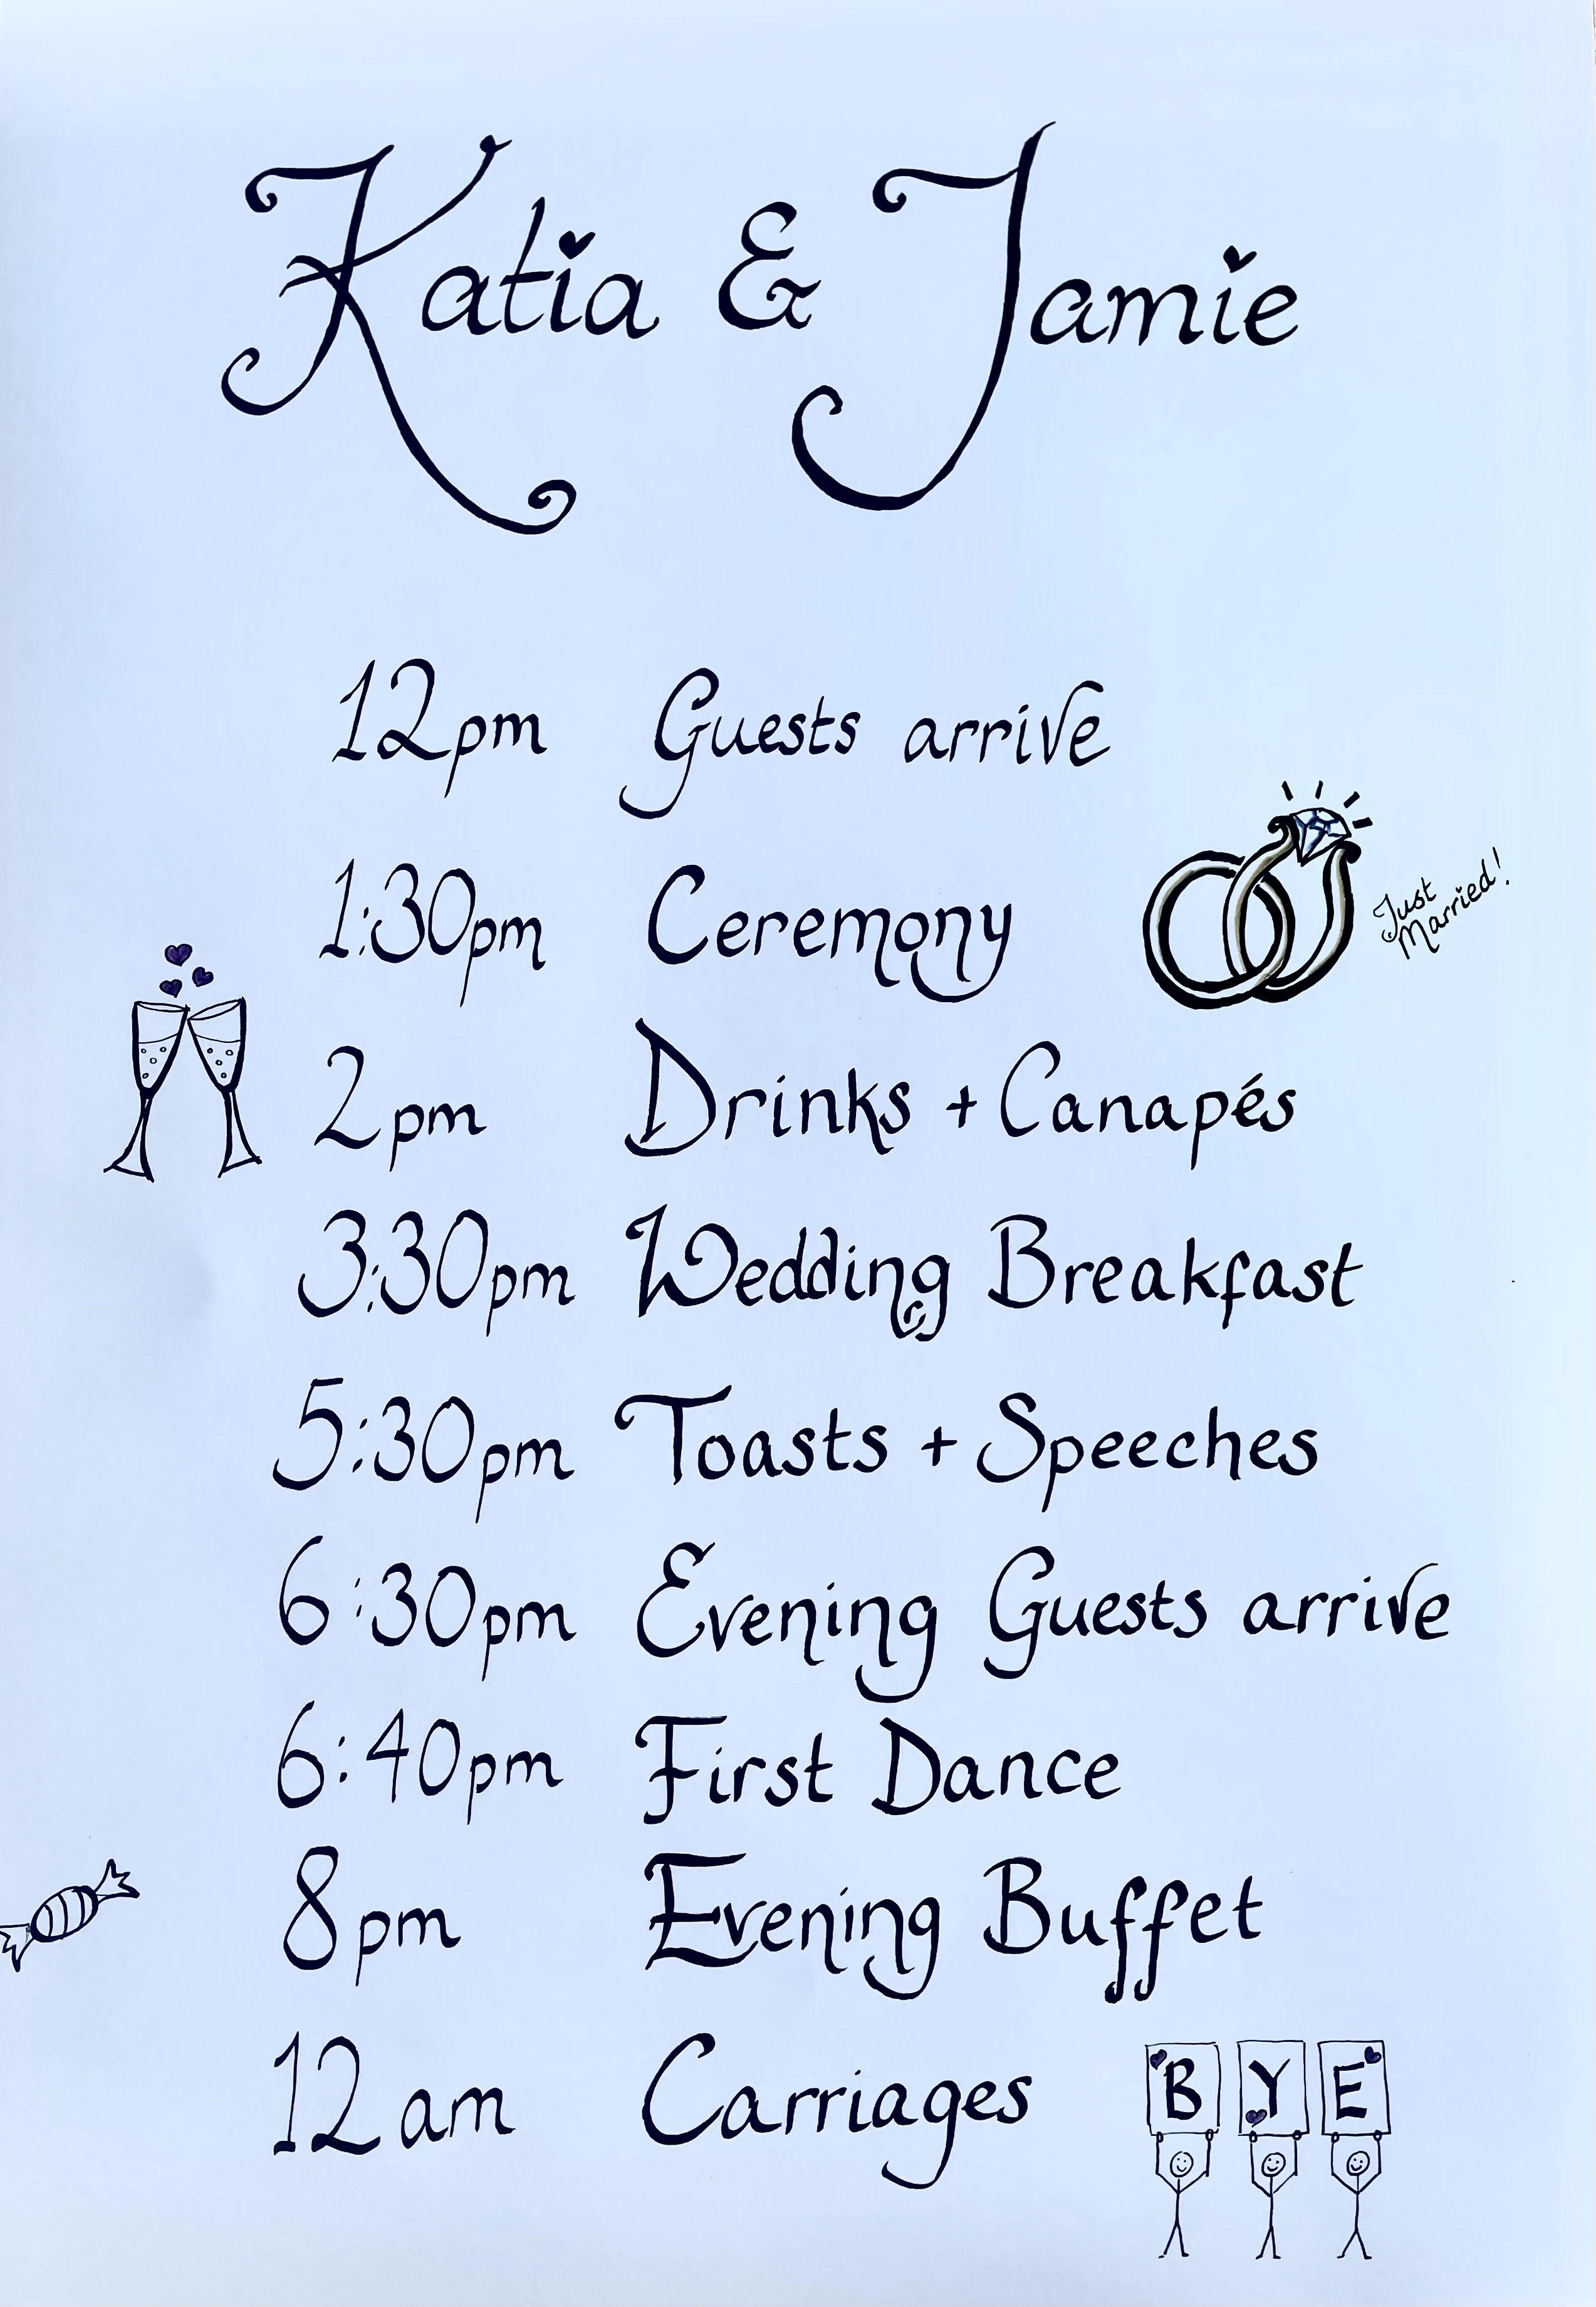 Katia & Jamie
12pm Guests arrive
1:30pm Ceremony
Just
Married!
2pm Drinks + Canapés
3:30pm Wedding Breakfast
5:30pm Toasts + Speeches
6:30pm Evening Guests arrive
6:40pm First Dance
8pm Evening Buffet
12am Carriages
BYE